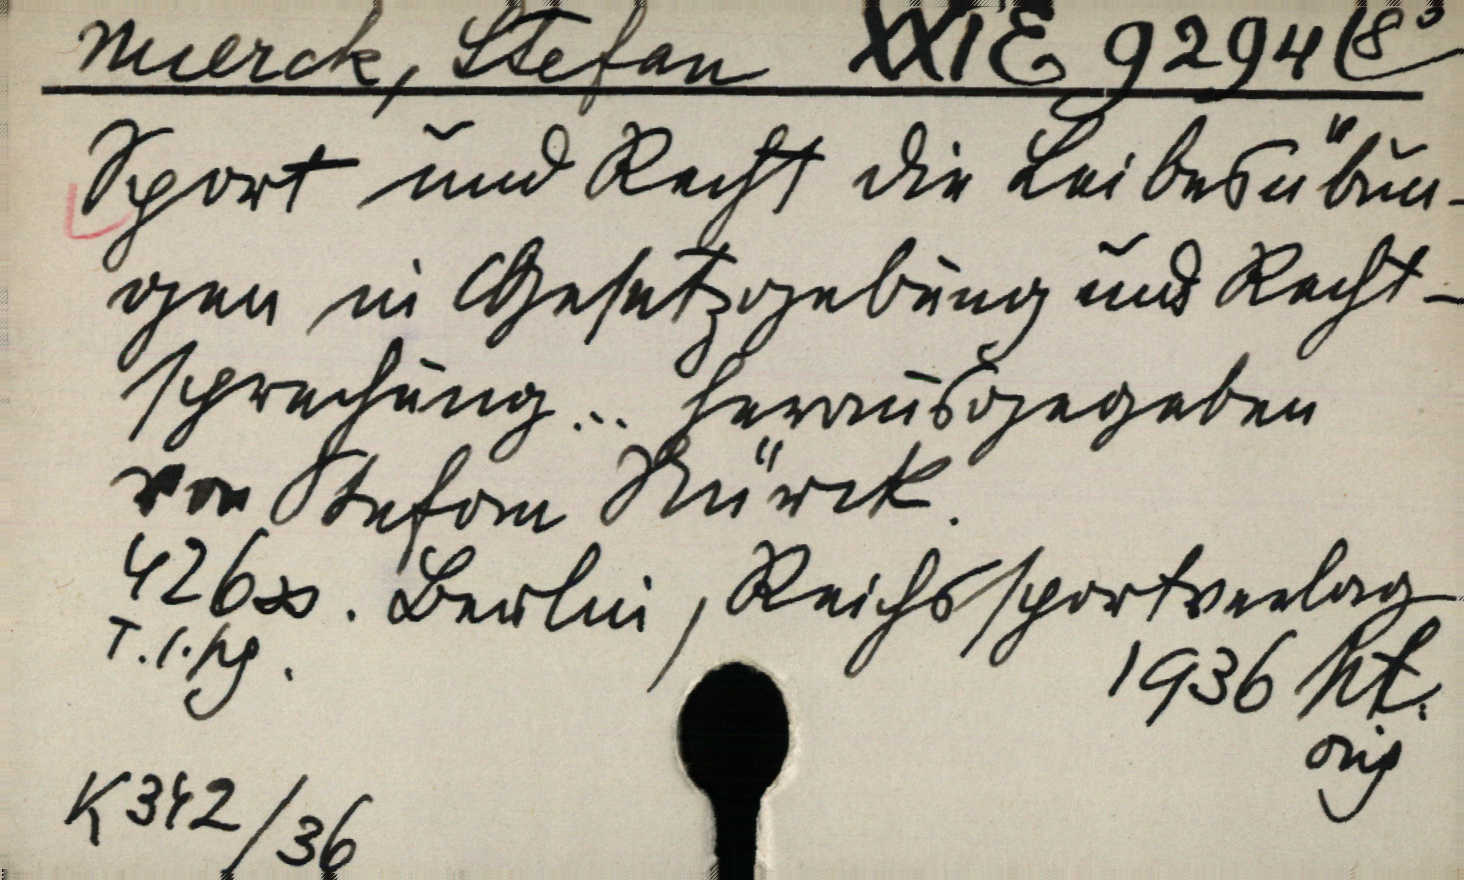 Muerck, Stefan XXIE 9294 (8°
Sport und Recht die Leibesübun-
gen in Gesetzgebung und Recht-
sprechung... herausgegeben
von Stefan Mürck.
426 SS. Berlin, Reichssportverlag
1936
orig
K 342/36